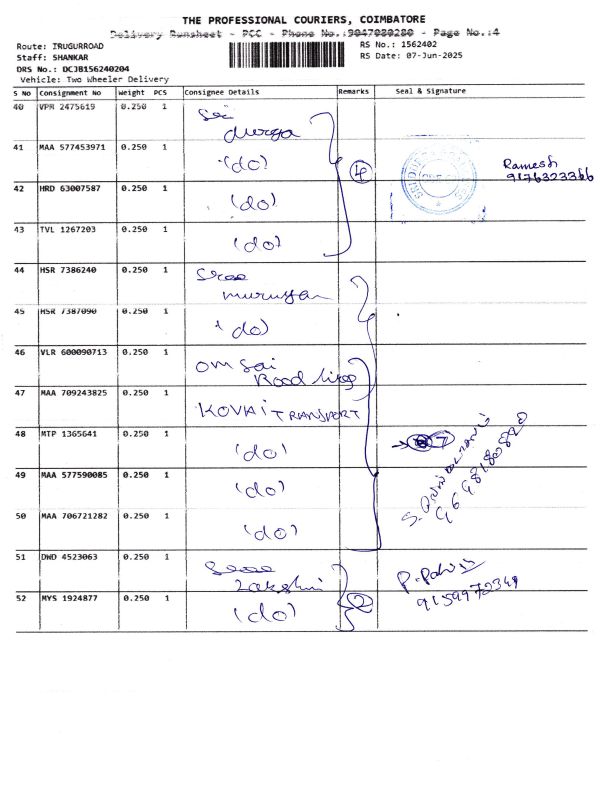 THE PROFESSIONAL COURIERS, COIMBATORE
Delivery Runsheet - PCC - Phone No.:9047080280 - Page No.:4
Route: IRUGURROAD
RS No.: 1562402
Staff: SHANKAR
RS Date: 07-Jun-2025
DRS No.: DCJB156240204
Vehicle: Two Wheeler Delivery
S No Consignment No Weight PCS Consignee Details Remarks Seal & Signature
40 VPM 2475619 0.250 1 Sri
durga
41 MAA 577453971 0.250 1 (do) 4 Ramesh
42 HRD 63007587 0.250 1 (do)
43 TVL 1267203 0.250 1 (do)
44 HSR 7386240 0.250 1 Sree
murugan
45 HSR 7387090 0.250 1 (do)
46 VLR 600090713 0.250 1 Om Sai
Road lines
47 MAA 709243825 0.250 1 KOVAI TRANSPORT
48 MTP 1365641 0.250 1 (do) 7
49 MAA 577590085 0.250 1 (do)
50 MAA 706721282 0.250 1 (do)
51 DWD 4523063 0.250 1 Sree
Lakshmi
52 MYS 1924877 0.250 1 (do) 2